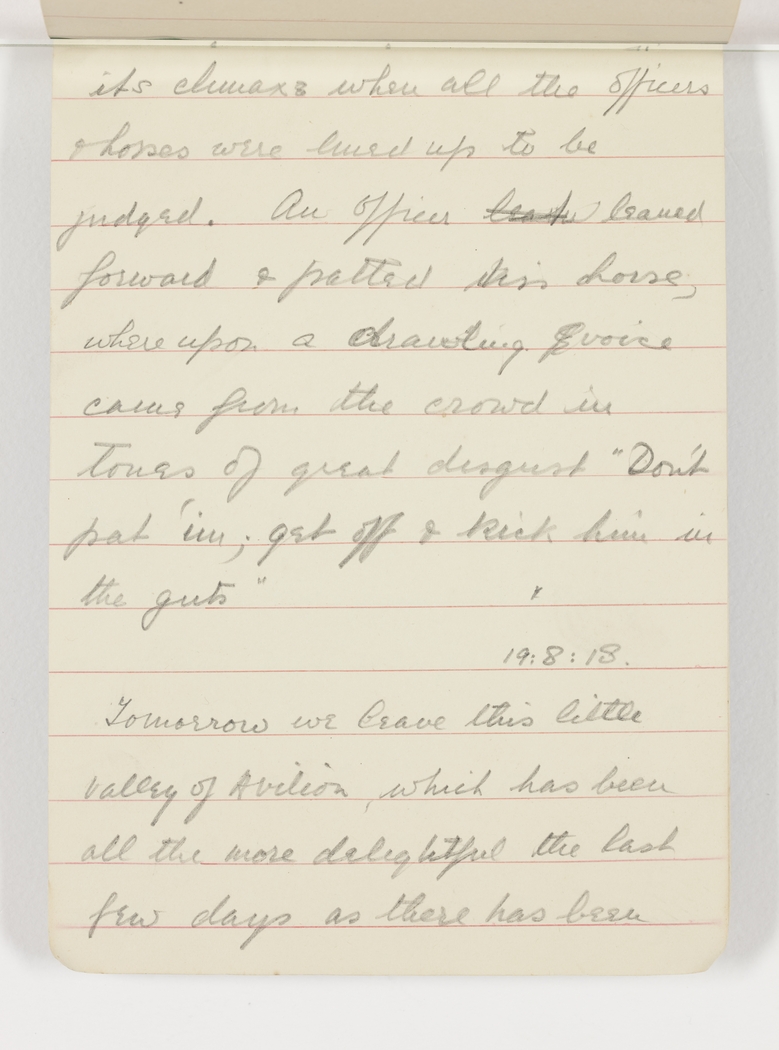 its climaxe when all the officers
& horses were lined up to be
judged. An officer leaned
forward & patted his horse,
where upon a drawling voice
came from the crowd in
tones of great disgust "Don't
pat 'im; get off & kick him in
the guts"
19:8:18.
Tomorrow we leave this little
valley of Avilion, which has been
all the more delightful the last
few days as there has been